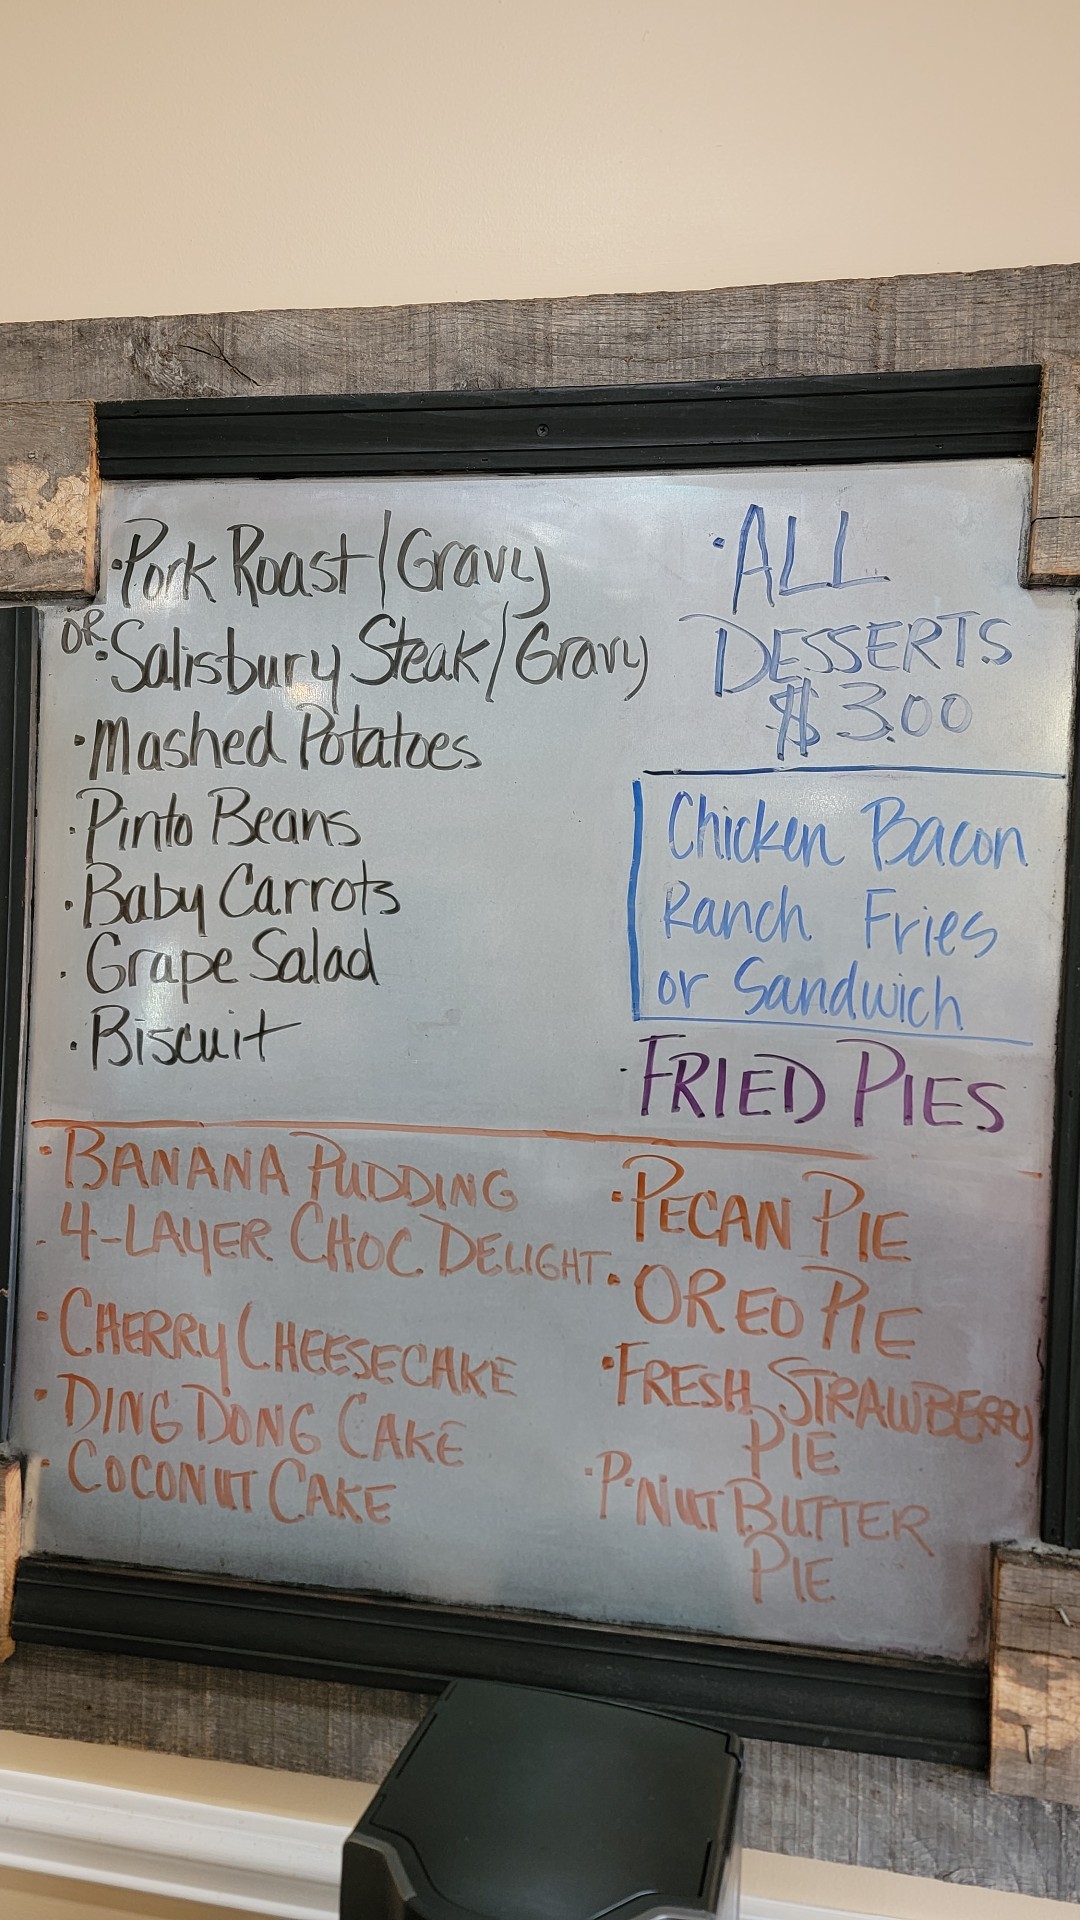 ·Pork Roast/Gravy
OR ·Salisbury Steak/Gravy
·Mashed Potatoes
·Pinto Beans
·Baby Carrots
·Grape Salad
·Biscuit
·ALL
DESSERTS
$3.00
Chicken Bacon
Ranch Fries
or Sandwich
·FRIED PIES
·BANANA PUDDING
·4-LAYER CHOC DELIGHT
·CHERRY CHEESECAKE
·DING DONG CAKE
·COCONUT CAKE
·PECAN PIE
·OREO PIE
·FRESH STRAWBERRY
PIE
·P·NUT BUTTER
PIE